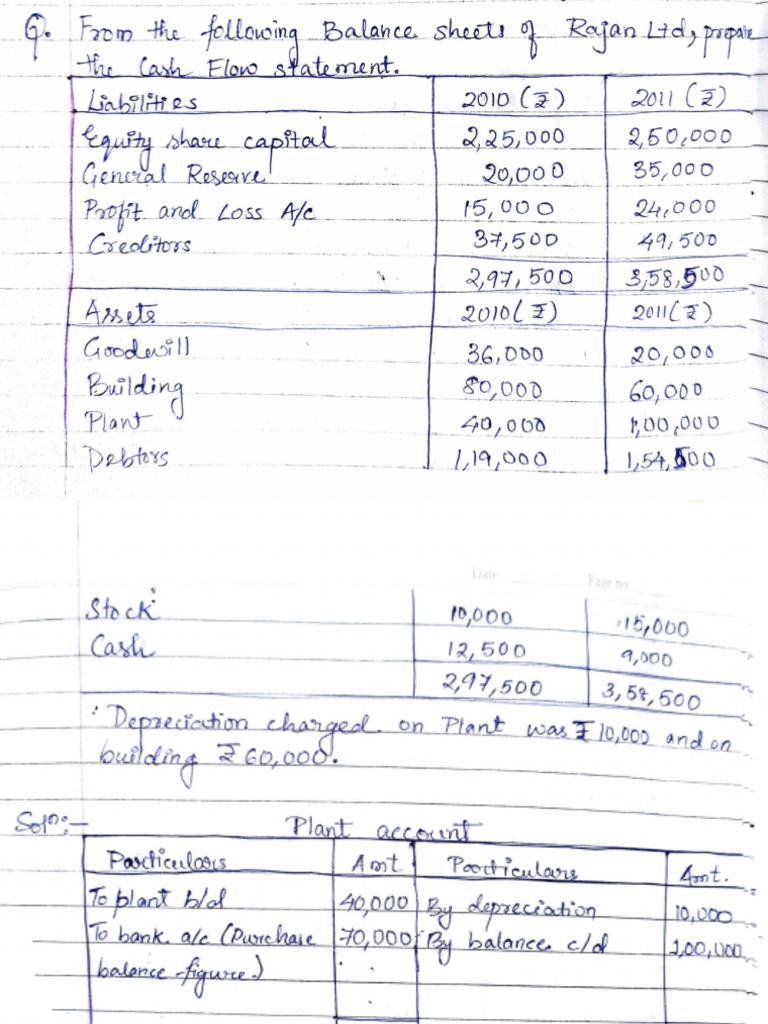 Q. From the following Balance sheets of Rajan Ltd, prepare
the Cash Flow statement.
Liabilities 2010 (₹) 2011 (₹)
Equity share capital 2,25,000 2,50,000
General Reserve 20,000 35,000
Profit and Loss A/c 15,000 24,000
Creditors 37,500 49,500
2,97,500 3,58,500
Assets 2010 (₹) 2011 (₹)
Goodwill 36,000 20,000
Building 80,000 60,000
Plant 40,000 1,00,000
Debtors 1,19,000 1,54,500
Date Page no.
Stock 10,000 15,000
Cash 12,500 9,000
2,97,500 3,58,500
: Depreciation charged on Plant was ₹ 10,000 and on
building ₹ 60,000.
Soln:- Plant account
Particulars Amt Particulars Amt.
To plant b/d 40,000 By depreciation 10,000
To bank a/c (Purchase 70,000 By balance c/d 1,00,000
balance-figure)